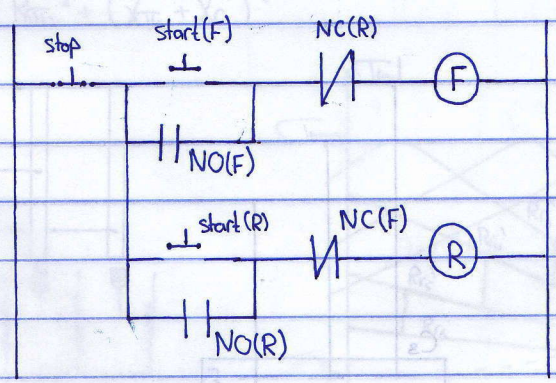 stop
start(F)
NC(R)
F
NO(F)
start(R)
NC(F)
R
NO(R)